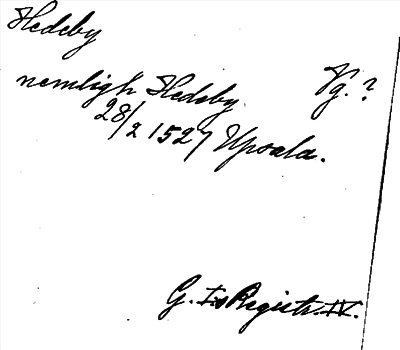 Hedeby
nemligh Hedeby. Vg. ?
28/2 1527 Upsala.
G. I:s Registr. IV.